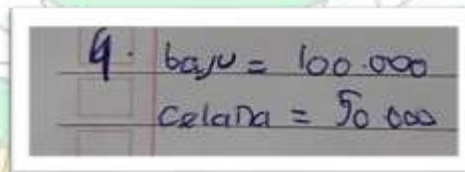 9. baju = 100.000
celana = 50 000